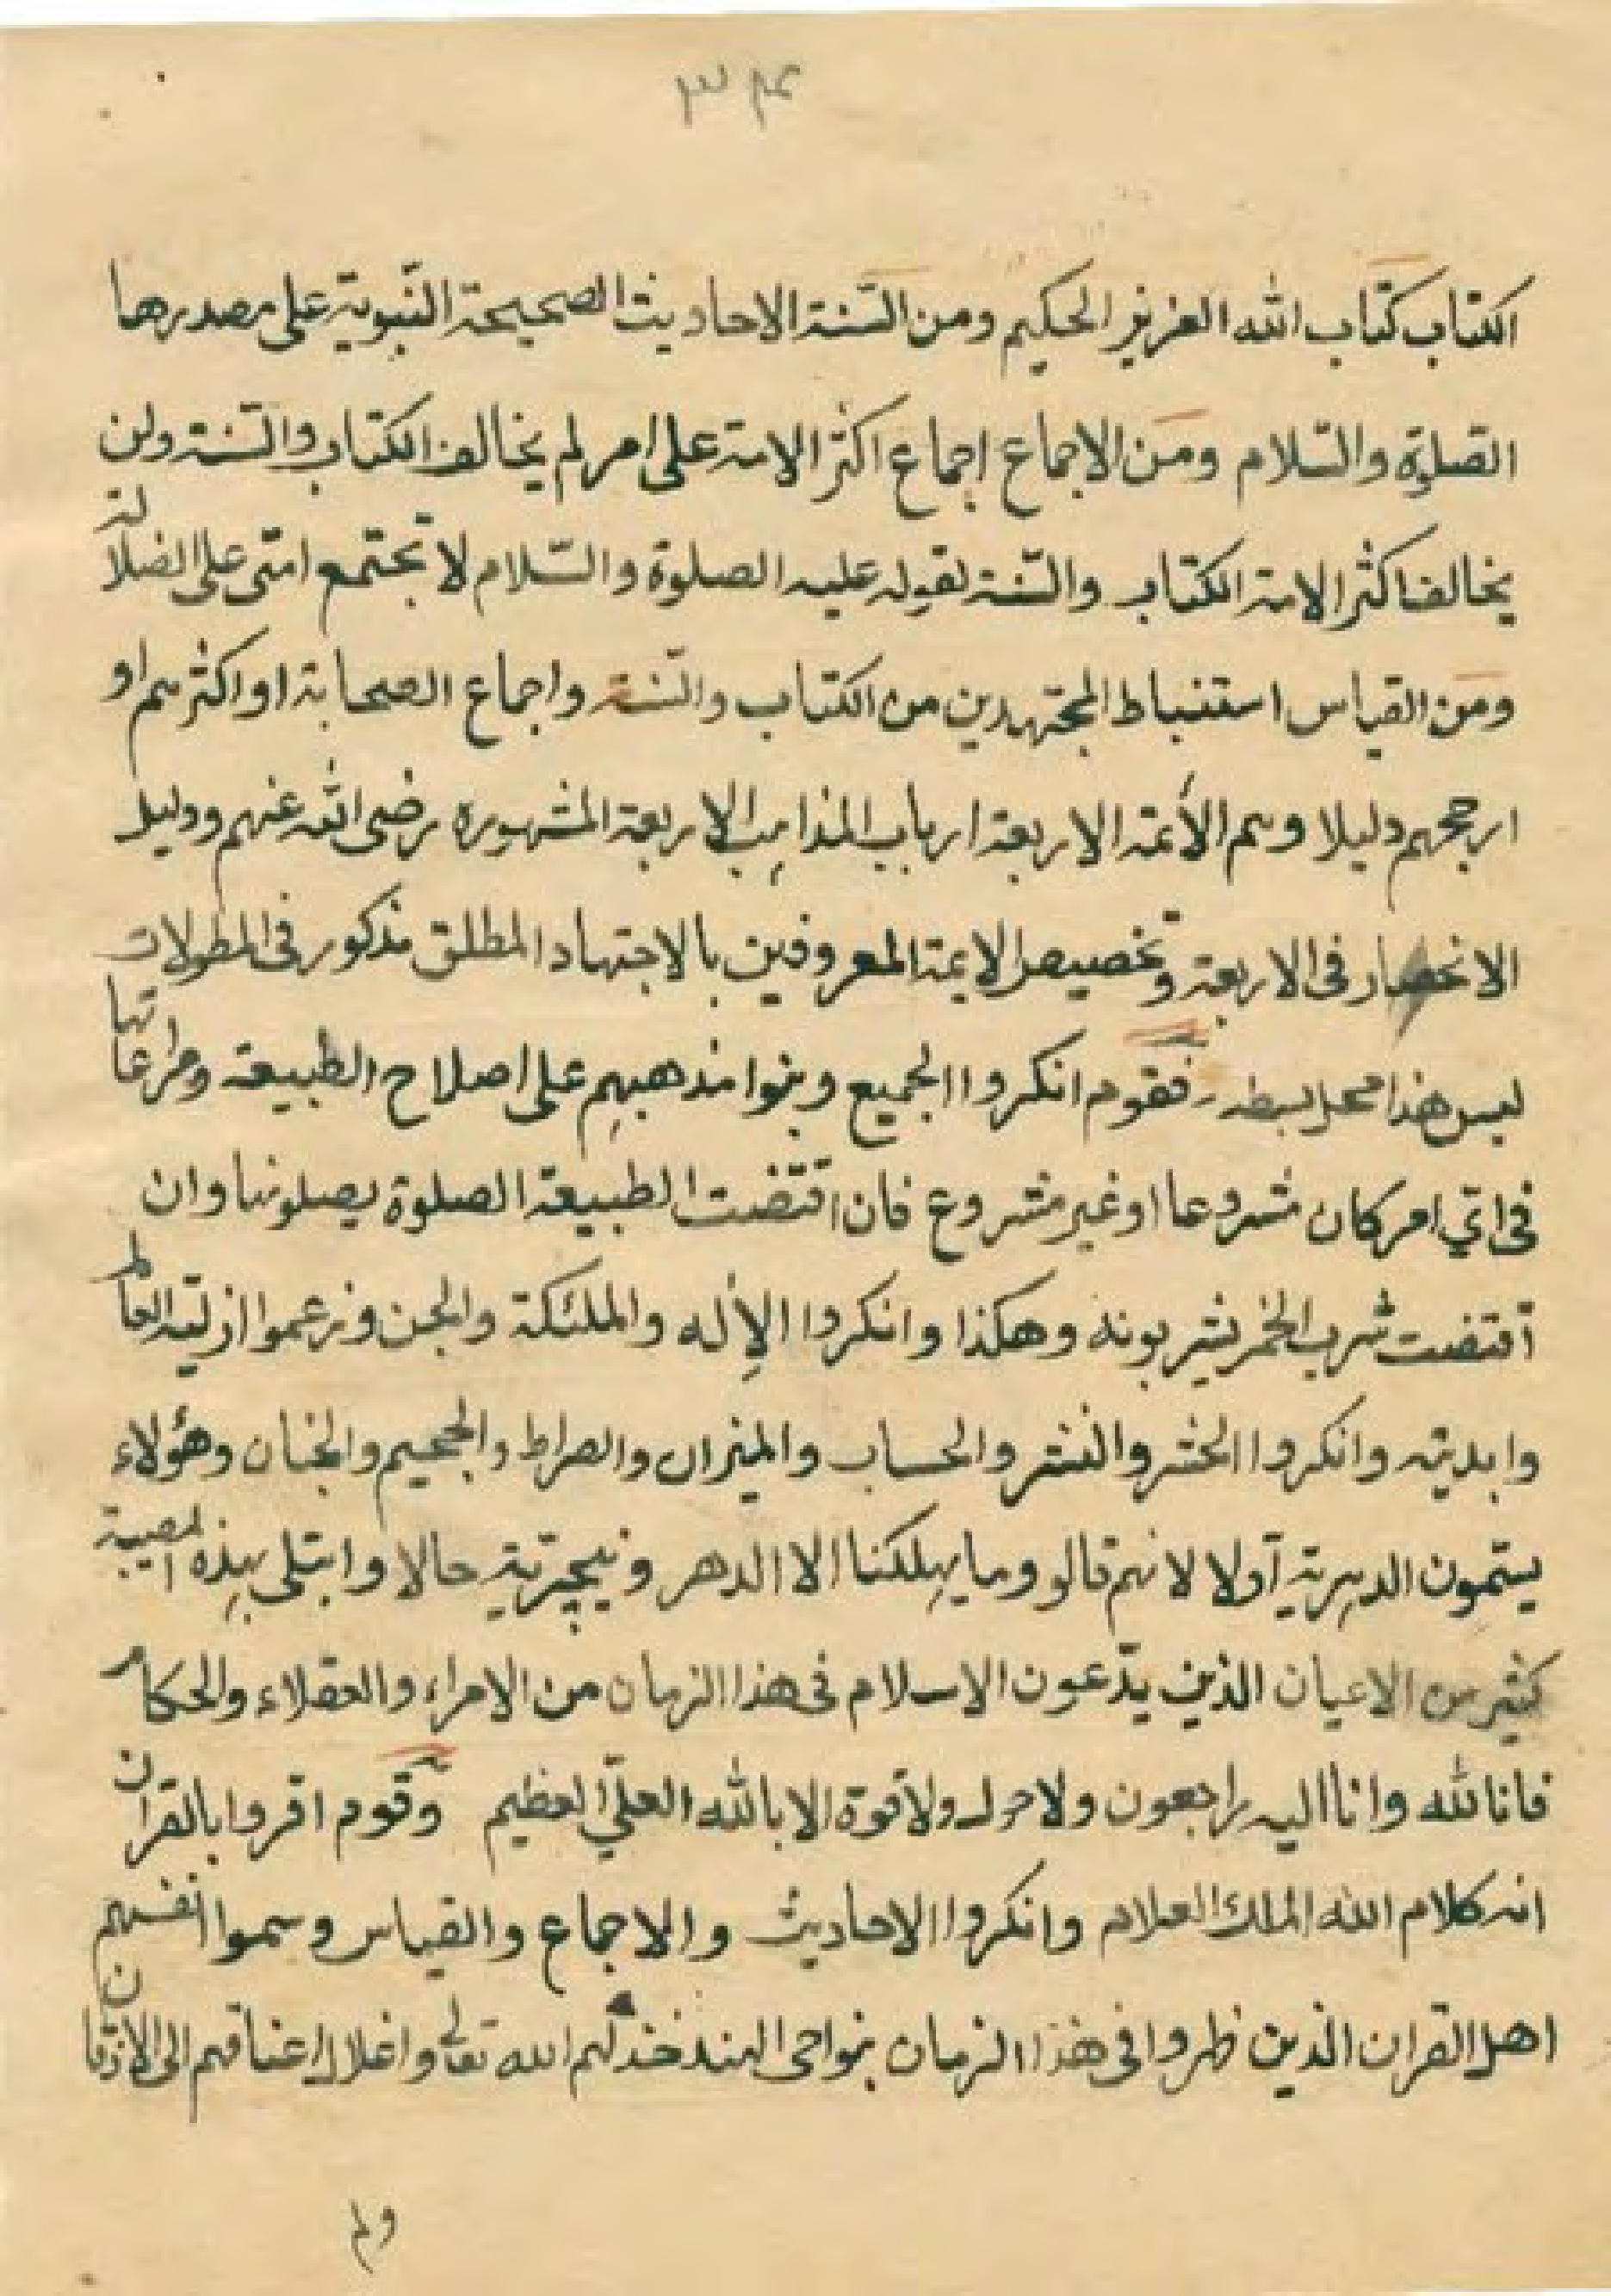 ٣٤
الكتاب كتاب الله العزيز الحكيم ومن السّنة الاحاديث الصحيحة النّبوية على مصدرها
الصلوة والسّلام ومن الاجماع اجماع اكثر الامة على امر لم يخالف الكتاب والسّنة ولن
يخالف اكثر الامة الكتاب والسّنة لقوله عليه الصلوة والسّلام لا تجتمع امتى على الضلالة
ومن القياس استنباط المجتهدين من الكتاب والسّنة واجماع الصحابة او اكثرهم او
ارجحهم دليلا وهم الأئمة الاربعة ارباب المذاهب الاربعة المشهوره رضى الله عنهم ودليل
الانحصار فى الاربعة وتخصيص الايمة المعروفين بالاجتهاد المطلق مذكور فى المطولات
ليس هذا محل بسطه فقوم انكروا الجميع وبنوا مذهبهم على اصلاح الطبيعة ومراعاتها
فى اي امر كان مشروعا او غير مشروع فان اقتضت الطبيعة الصلوة يصلونها وان
اقتضت شرب الخمر يشربونه وهكذا وانكروا الإله والملئكة والجن وزعموا ازلية العالم
وابديته وانكروا الحشر والنشر والحساب والميزان والصراط والجحيم والجنان وهؤلاء
يسمّون الدهرية اولا لانهم قالو وما يهلكنا الا الدهر ونيچرية حالا وابتلى بهذه المصيبة
كثير من الاعيان الذين يدّعون الاسلام فى هذا الزمان من الامراء والعقلاء والحكام
فانا لله وانا اليه راجعون ولا حول ولا قوة الا بالله العلّي العظيم وقوم اقروا بالقران
انه كلام الله الملك العلام وانكروا الاحاديث والاجماع والقياس وسموا انفسهم
اهل القران الذين ظهروا فى هذا الزمان بنواحى الهند خذلهم الله تعالى واغلال اعناقهم الى الاذقان
ولم